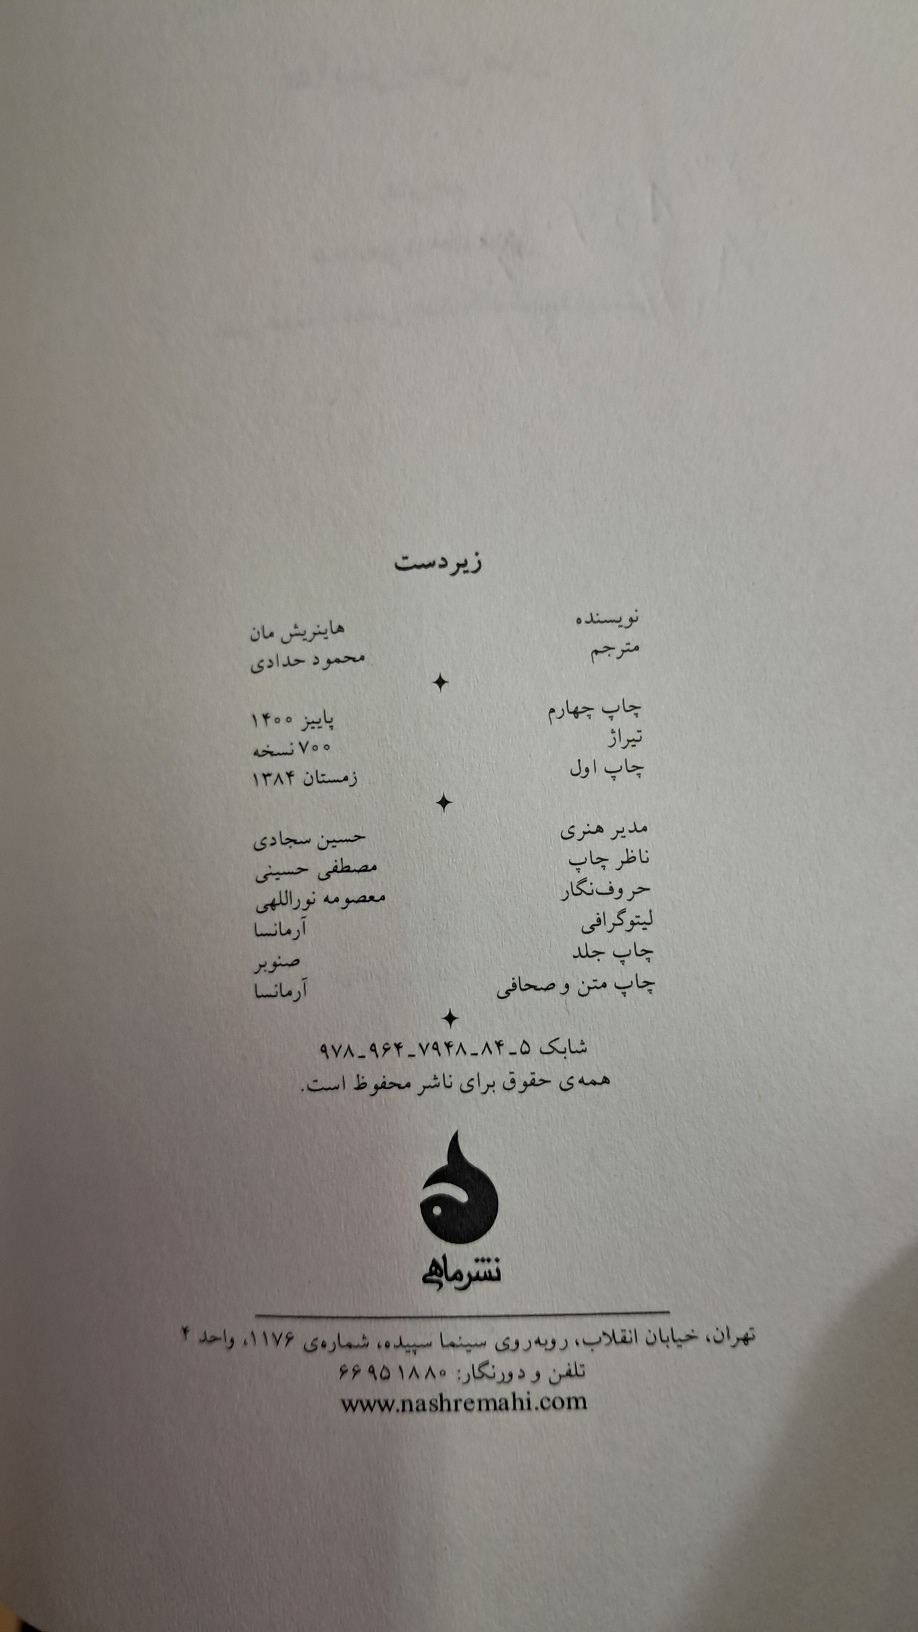 زیردست
نویسنده هاینریش مان
مترجم محمود حدادی
چاپ چهارم پاییز ۱۴۰۰
تیراژ ۷۰۰ نسخه
چاپ اول زمستان ۱۳۸۴
مدیر هنری حسین سجادی
ناظر چاپ مصطفی حسینی
حروف‌نگار معصومه نوراللهی
لیتوگرافی آرمانسا
چاپ جلد صنوبر
چاپ متن و صحافی آرمانسا
شابک ۵-۸۴-۷۹۴۸-۹۶۴-۹۷۸
همه‌ی حقوق برای ناشر محفوظ است.
نشرماهی
تهران، خیابان انقلاب، روبه‌روی سینما سپیده، شماره‌ی ۱۱۷۶، واحد ۴
تلفن و دورنگار: ۶۶۹۵۱۸۸۰
www.nashremahi.com